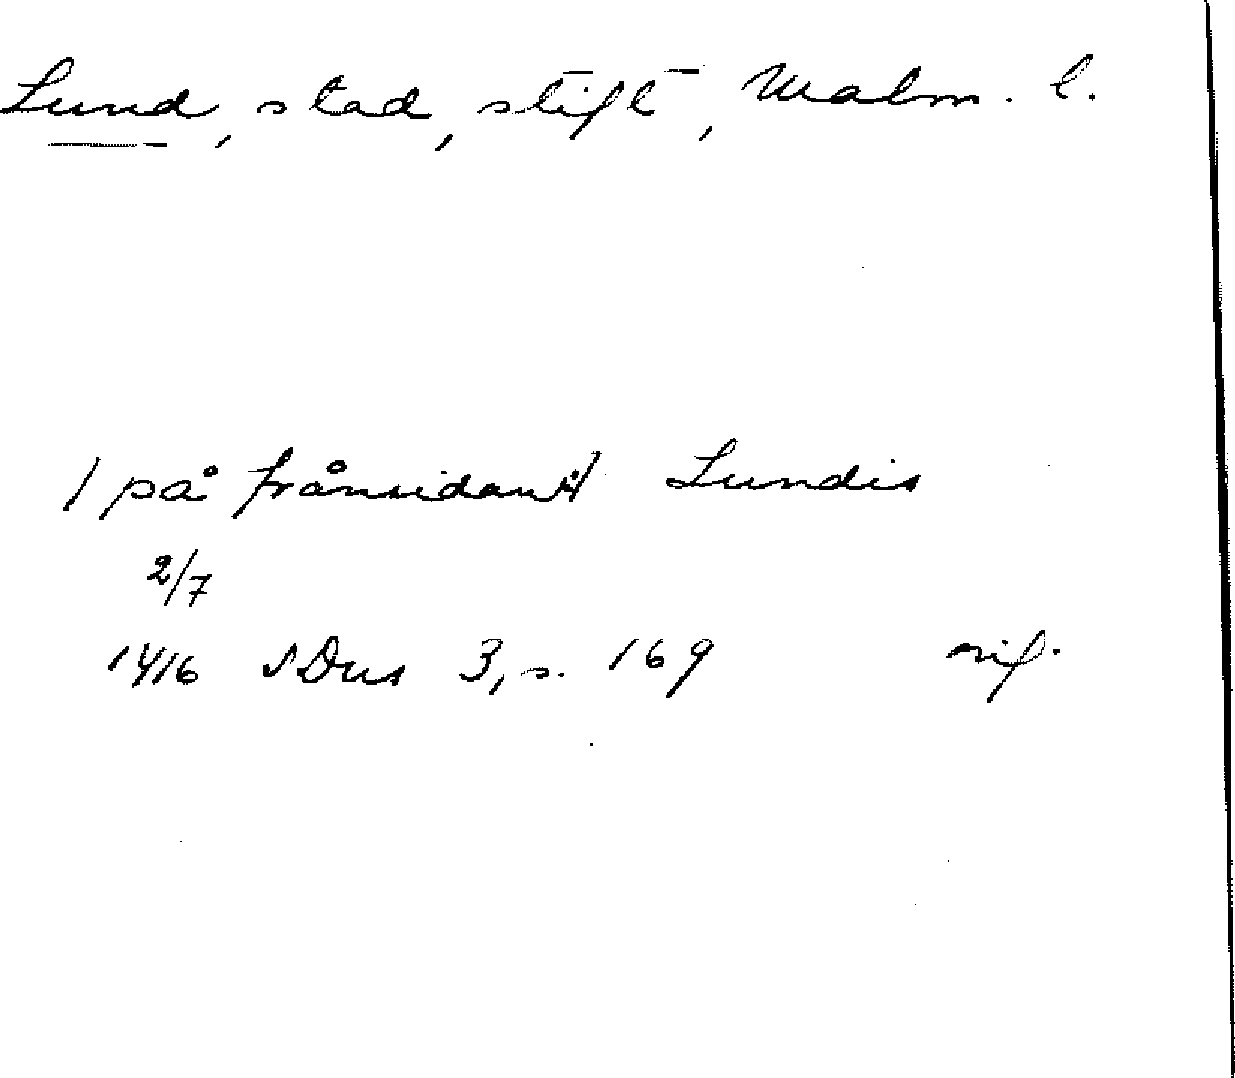 Lund, stad, stift, Malm. l.
/ på frånsidan / Lundis
2/7
1416 SDns 3, s. 169